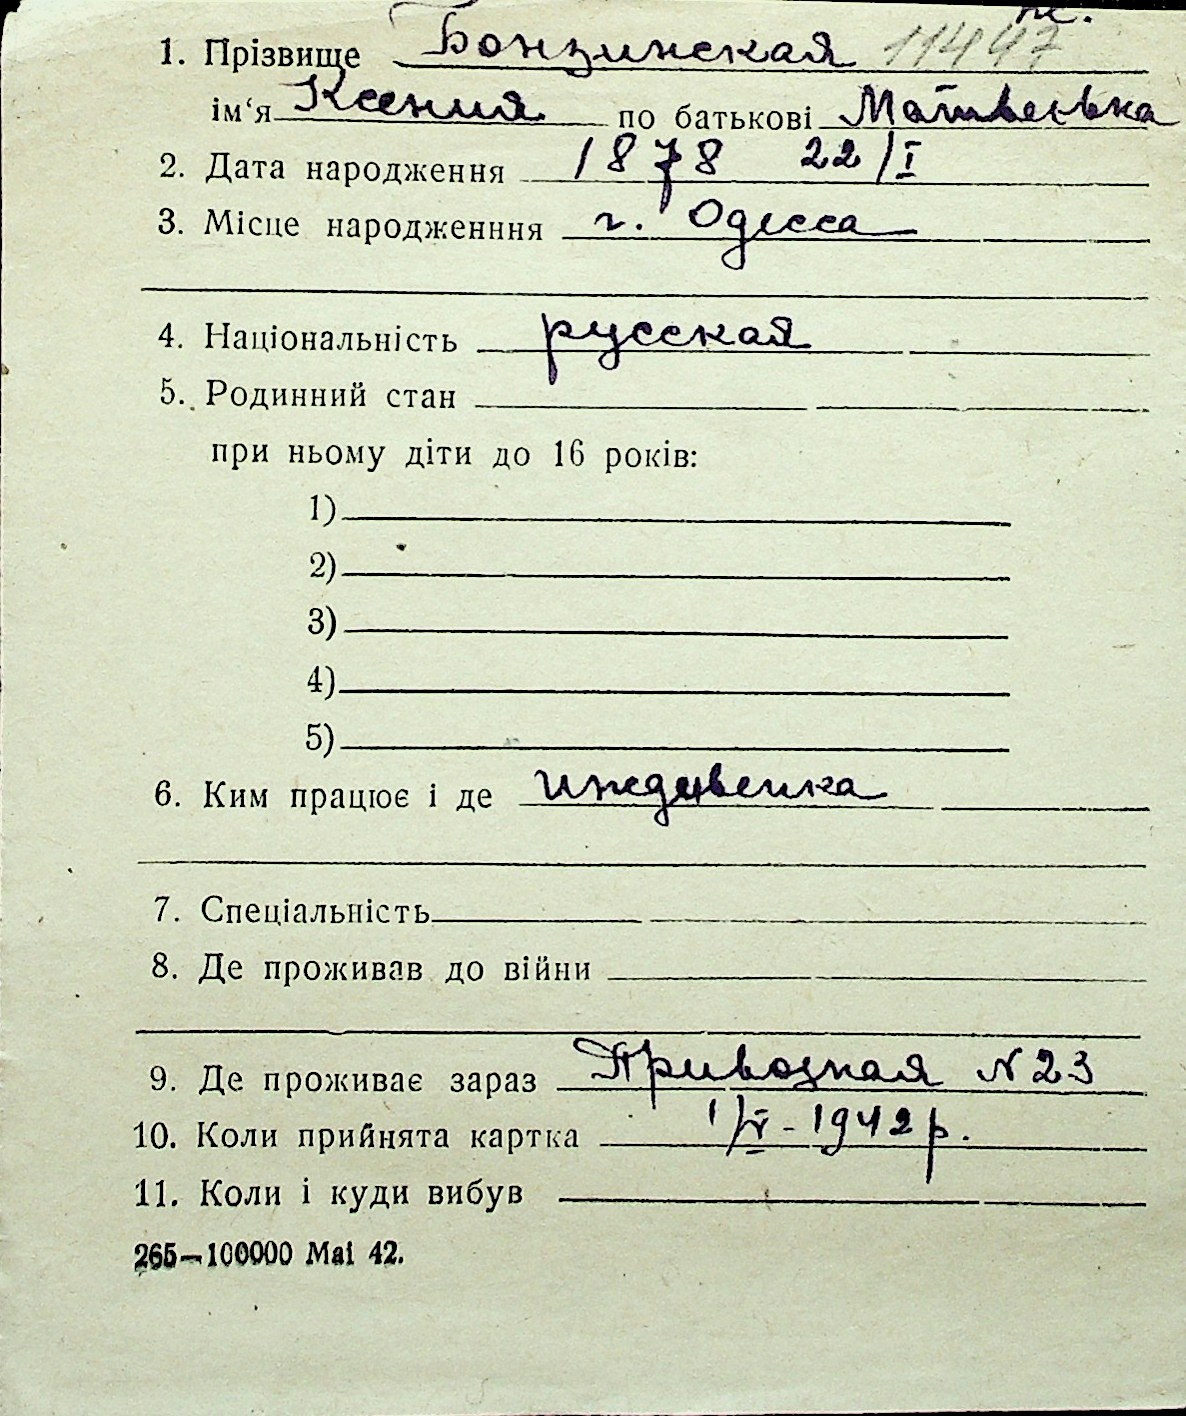 1. Прізвище Бонзинская 11447
ім‘я Ксения по батькові Матвеевна
2. Дата народження 1878 22/I
3. Місце народженння г. Одесса
4. Національність русская
5. Родинний стан
при ньому діти до 16 років:
1)
2)
3)
4)
5)
6. Ким працює і де иждивенка
7. Спеціальність
8. Де проживав до війни
9. Де проживає зараз Привозная N 23
10. Коли прийнята картка 1/IV - 1942 р.
11. Коли і куди вибув
265—100000 Mai 42.